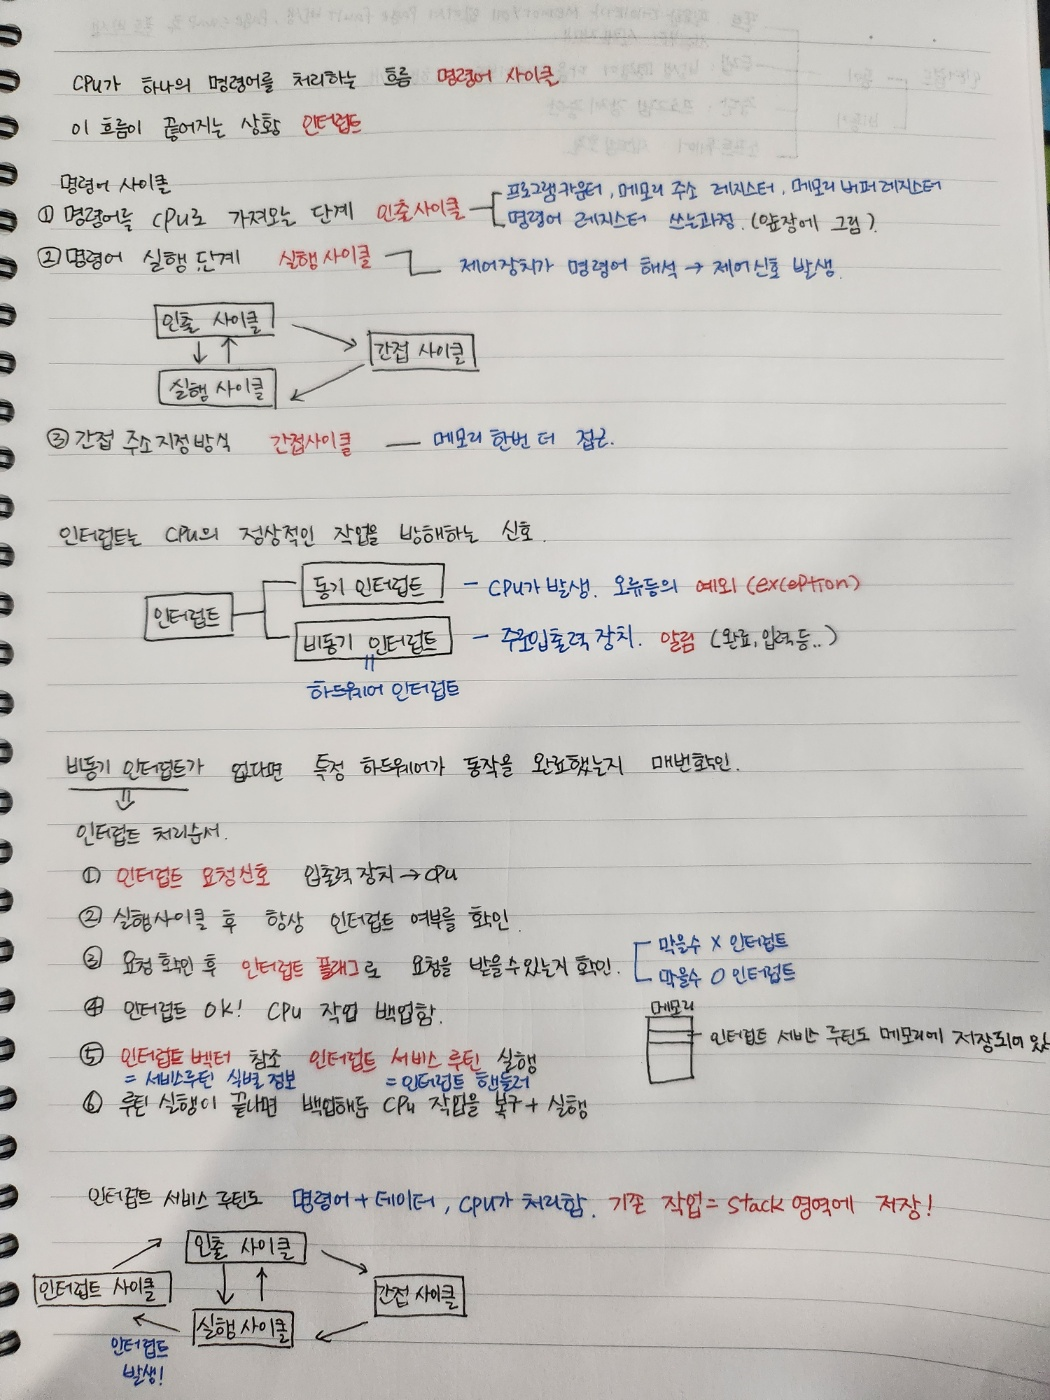 CPU가 하나의 명령어를 처리하는 흐름 명령어 사이클
이 흐름이 끊어지는 상황 인터럽트
명령어 사이클
① 명령어를 CPU로 가져오는 단계 인출사이클 프로그램 카운터, 메모리 주소 레지스터, 메모리 버퍼 레지스터
명령어 레지스터 쓰는과정. (앞장에 그림)
② 명령어 실행 단계 실행사이클 제어장치가 명령어 해석 → 제어신호 발생.
인출 사이클
간접 사이클
실행 사이클
③ 간접 주소 지정 방식 간접사이클 — 메모리 한번 더 접근.
인터럽트는 CPU의 정상적인 작업을 방해하는 신호.
동기 인터럽트 - CPU가 발생. 오류등의 예외 (exception)
인터럽트
비동기 인터럽트 - 주로 입출력 장치. 알림 (완료, 입력 등..)
=
하드웨어 인터럽트
비동기 인터럽트가 없다면 특정 하드웨어가 동작을 완료했는지 매번확인.
인터럽트 처리순서.
① 인터럽트 요청신호 입출력 장치 → CPU
② 실행사이클 후 항상 인터럽트 여부를 확인.
③ 요청 확인 후 인터럽트 플래그로 요청을 받을수있는지 확인. 막을수 X 인터럽트
막을수 O 인터럽트
④ 인터럽트 OK! CPU 작업 백업함.
메모리
인터럽트 서비스 루틴도 메모리에 저장되어 있
⑤ 인터럽트 벡터 참조 인터럽트 서비스 루틴 실행
= 서비스루틴 식별 정보 = 인터럽트 핸들러
⑥ 루틴 실행이 끝나면 백업해둔 CPU 작업을 복구 + 실행
인터럽트 서비스 루틴도 명령어 + 데이터, CPU가 처리함. 기존 작업 = Stack 영역에 저장!
인출 사이클
인터럽트 사이클
간접 사이클
실행 사이클
인터럽트
발생!